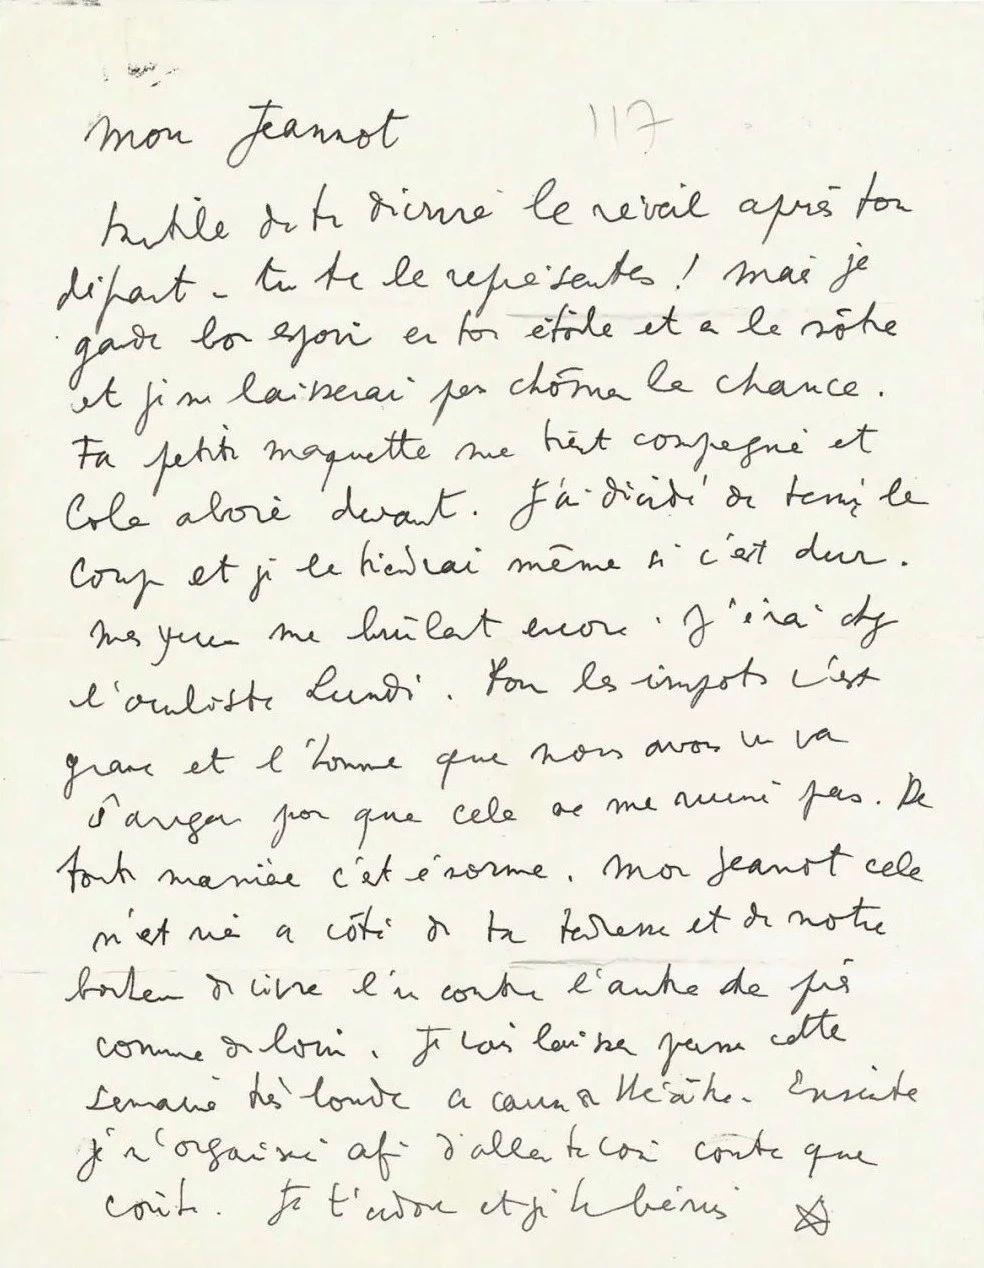 Mon Jeannot
117
Inutile de te décrire le réveil après ton
départ - tu te le représentes ! Mais je
garde bon espoir en ton étoile et a la nôtre
et je ne laisserai pas chômer la chance.
Ta petite maquette me tient compagnie et
Cola aboie devant. J'ai décidé de tenir le
coup et je le tiendrai même si c'est dur.
Mes yeux me brûlent encore. J'irai chez
l'oculiste Lundi. Pour les impots c'est
grave et l'homme que nous avons vu va
s'arranger pour que cela ne me ruine pas. De
toute manière c'est énorme. Mon Jeannot cela
n'est rien a côté de ta tendresse et de notre
bonheur de vivre l'un contre l'autre de près
comme de loin. Je vais laisser passer cette
semaine très lourde a cause du théâtre. Ensuite
je m'organise afin d'aller te voir coute que
coute. Je t'adore et je te bénis